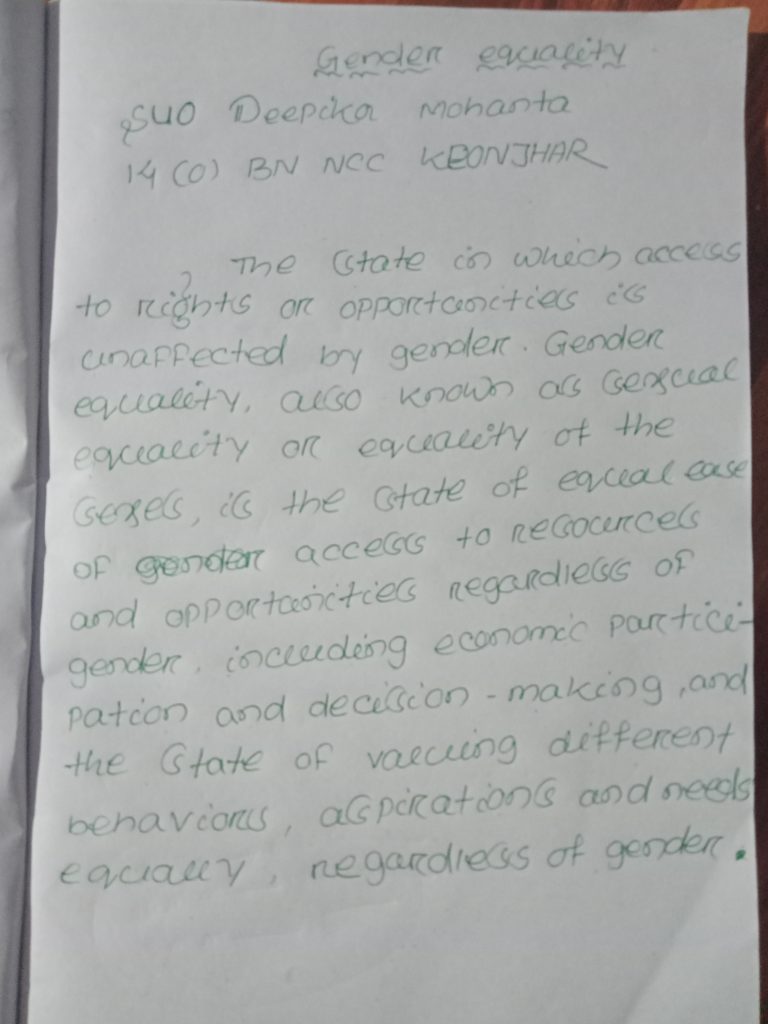 Gender equality
SUO Deepika Mohanta
14 (O) BN NCC KEONJHAR
The state in which access
to rights or opportunities is
unaffected by gender. Gender
equality, also known as sexual
equality or equality of the
sexes, is the state of equal ease
of gender access to resources
and opportunities regardless of
gender, including economic partici-
pation and decision-making, and
the state of valuing different
behaviors, aspirations and needs
equally, regardless of gender.